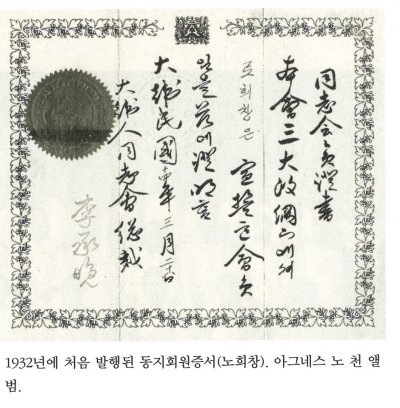 同志会員證書
本會三大政綱에
로희창은 宣誓한會員
임을玆에證明
大韓民國 年三月
大韓人同志會總裁
李承晚
1932년에 처음 발행된 동지회원증서(노희창). 아그네스 노 천 앨
범.